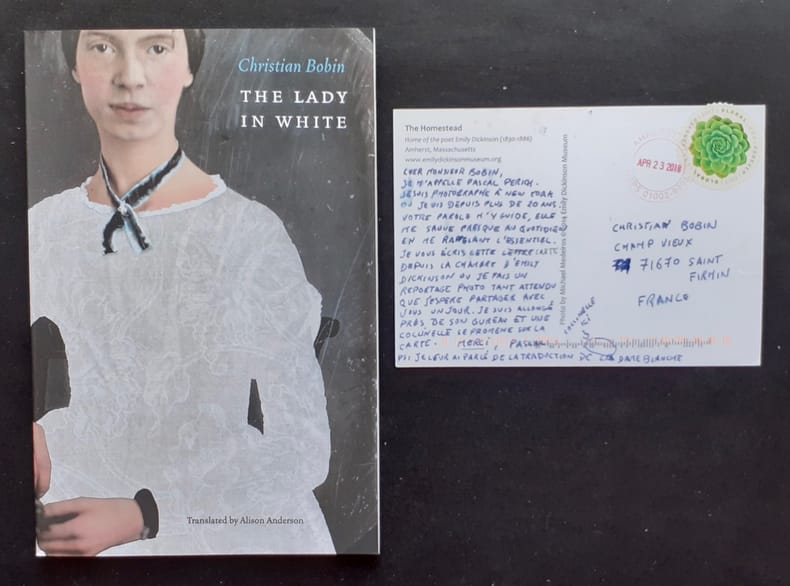 Christian Bobin
THE LADY
IN WHITE
Translated by Alison Anderson
The Homestead
Home of the poet Emily Dickinson (1830-1886)
Amherst, Massachusetts
www.emilydickinsonmuseum.org
CHER MONSIEUR BOBIN,
JE M'APPELLE PASCAL PERICH.
JE SUIS PHOTOGRAPHE À NEW YORK
OU JE VIS DEPUIS PLUS DE 20 ANS.
VOTRE PAROLE M'Y GUIDE, ELLE
ME SAUVE PRESQUE AU QUOTIDIEN
EN ME RAPPELANT L'ESSENTIEL.
JE VOUS ÉCRIS CETTE LETTRE CARTE
DEPUIS LA CHAMBRE D'EMILY
DICKINSON OU JE FAIS UN
REPORTAGE PHOTO TANT ATTENDU
QUE J'ESPERE PARTAGER AVEC
VOUS UN JOUR. JE SUIS ALLONGÉ
PRÈS DE SON BUREAU ET UNE
COCCINELLE SE PROMENE SUR LA
CARTE. MERCI, PASCAL
PS: JE LEUR AI PARLÉ DE LA TRADUCTION DE LA DAME BLANCHE
COCCINELLE
Photo by Michael Medeiros © 2014 Emily Dickinson Museum
APR 23 2018
GLOBAL
CHRISTIAN BOBIN
CHAMP VIEUX
71670 SAINT
FIRMIN
FRANCE